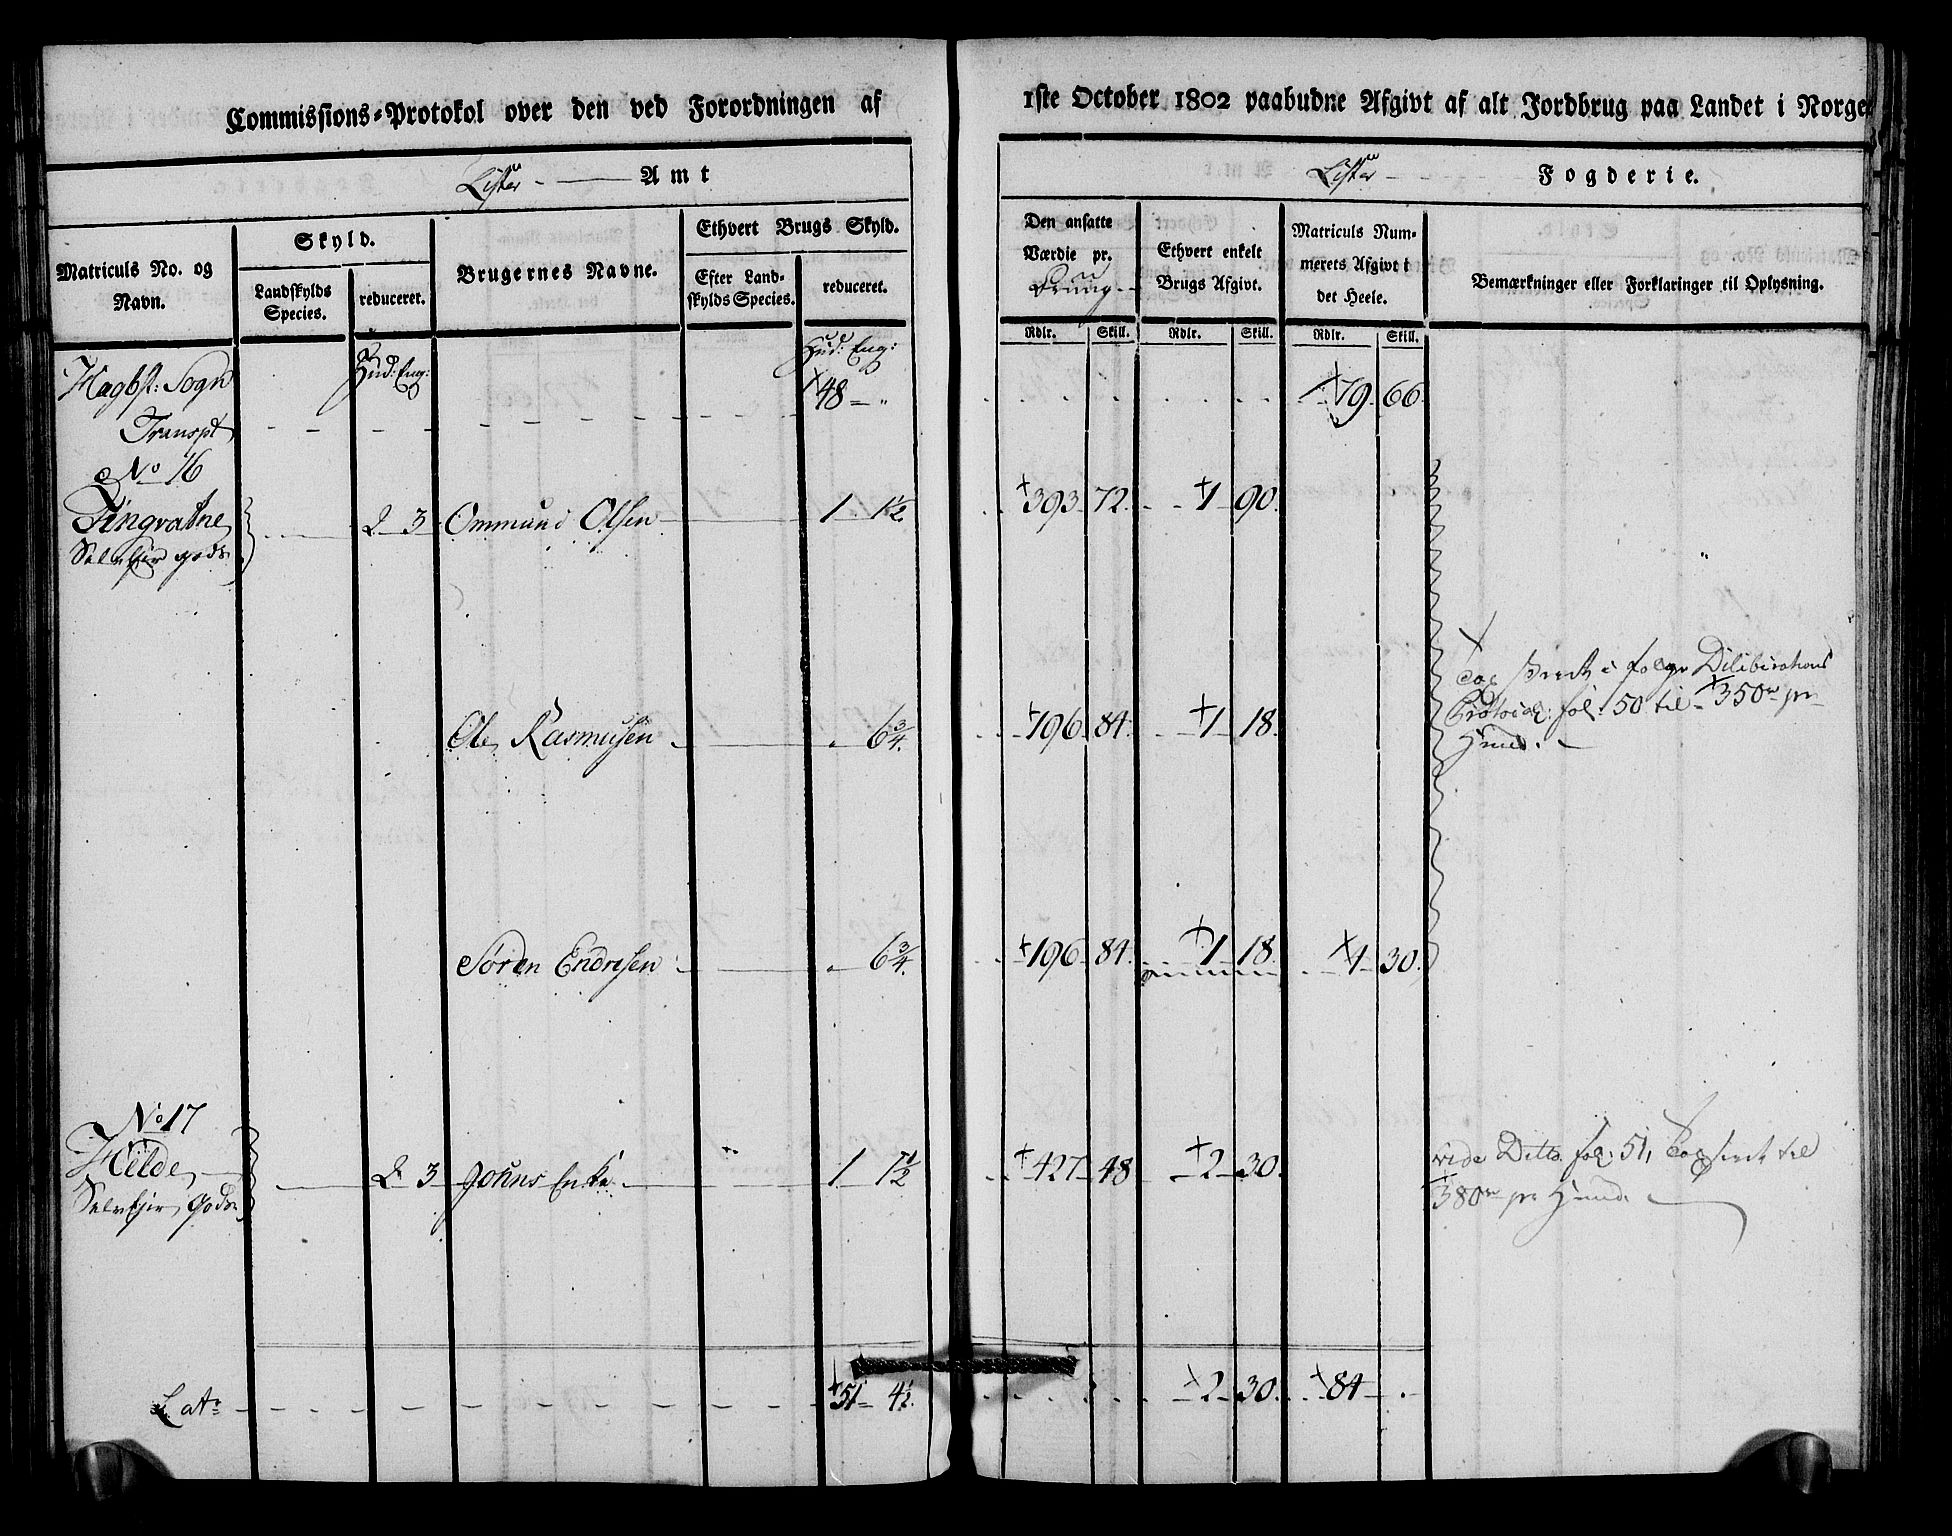 Commissions-Protokol over den ved Forordningen af 1ste October 1802 paabudne Afgivt af alt Jordbrug paa Landet i Norge
Lister Amt
Lister Fogderie.
Matriculs No. og Navn.
Skyld.
Landskylds Species.
reduceret.
Brugernes Navne.
Ethvert Brugs Skyld.
Efter Landskylds Species.
reduceret.
Den ansatte Værdie pr.
Ethvert enkelt Brugs Afgivt.
Matriculs Nummerets Afgivt i det Heele.
Bemærkninger eller Forklaringer til Oplysning.
Rdlr. Skill. Rdlr. Skill. Rdlr. Skill.
Hud: Eng: Hud: Eng:
Sogn
Transpt 48 - " 79 66.
No 16
2 3 Ommund Olsen 1 1½ 393 72. 1 90.
Ole Rasmusen 6¾. 196 84. 1 18.
i følge Deliberations
fol: 50 til 350 pr
Hud.
Søren Endresen 6¾. 196 84. 1 18. 1 30.
No 17
Helde 2 3 Johns Enke 1 7½ 427 48 2 30.
vide Ditto fol: 51, til
380 pr Hud.
Lat: 51 4½. 2 30. 84 .